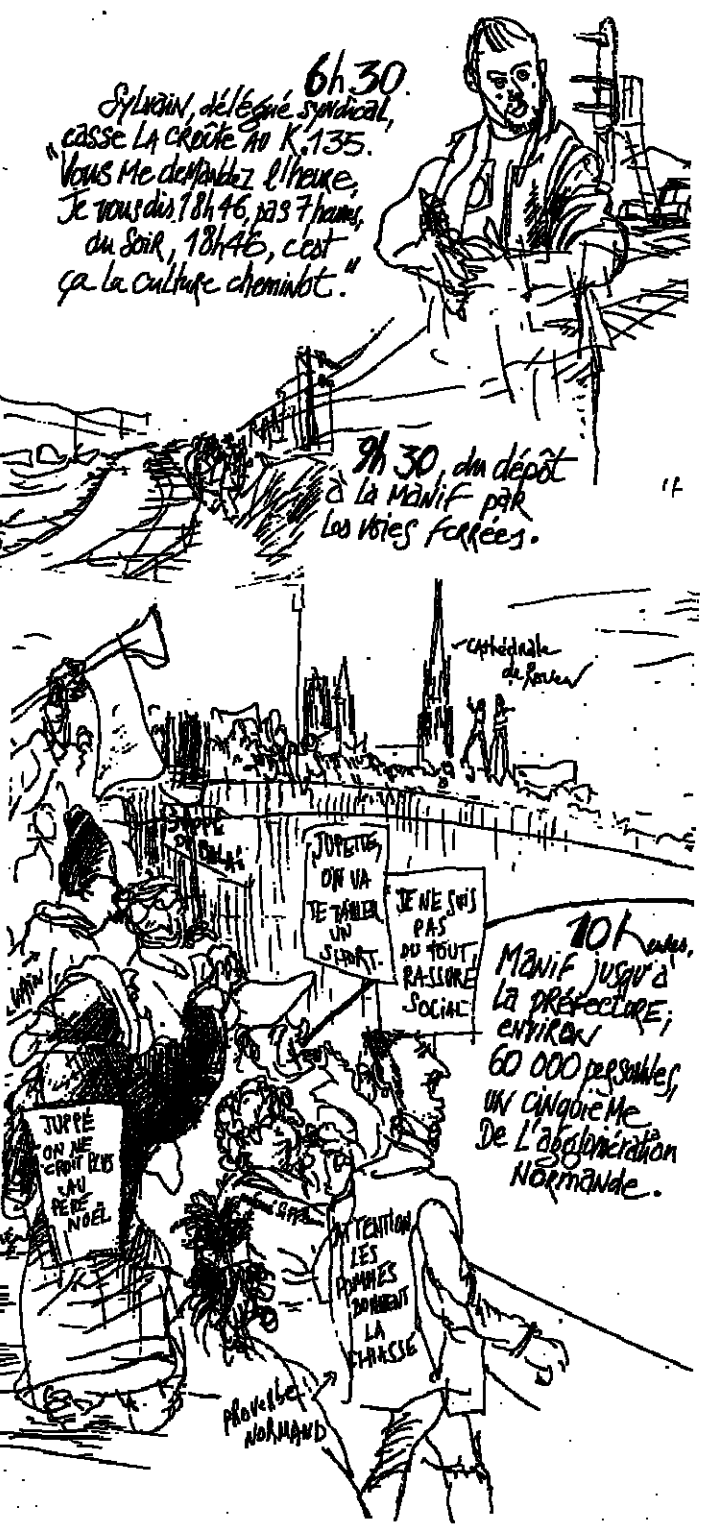 6h30.
Sylvain, délégué syndical,
casse la croûte au K.135.
"Vous me demandez l'heure,
Je vous dis 18h46, pas 7 heures
du soir, 18h46, c'est
ça la culture cheminot."
9h30, du dépôt
à la manif par
les voies ferrées.
cathédrale
de Rouen
JUPETTE,
ON VA
TE TAILLER
UN
SHORT.
JE NE SUIS
PAS
DU TOUT
RASSURÉ
SOCIAL
10 heures.
Manif jusqu'à
la préfecture ;
environ
60 000 personnes,
un cinquième
de l'agglomération
Normande.
JUPPÉ
ON NE
CROIT PLUS
AU
PÈRE
NOËL
ATTENTION
LES
POMMES
DONNENT
LA
CHIASSE
PROVERBE
NORMAND